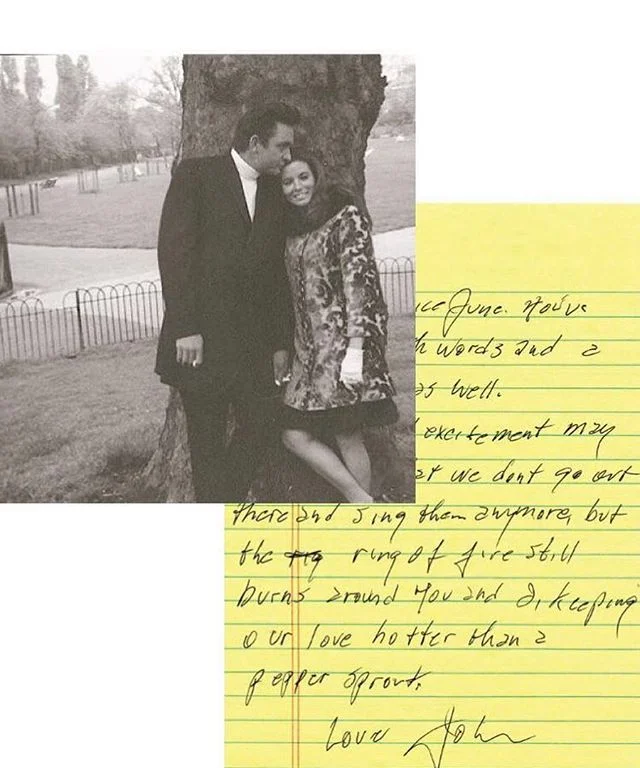 June. You've
words and a
as well.
excitement may
we dont go out
there and sing them anymore, but
the ring of fire still
burns around you and I, keeping
our love hotter than a
pepper sprout.
Love John